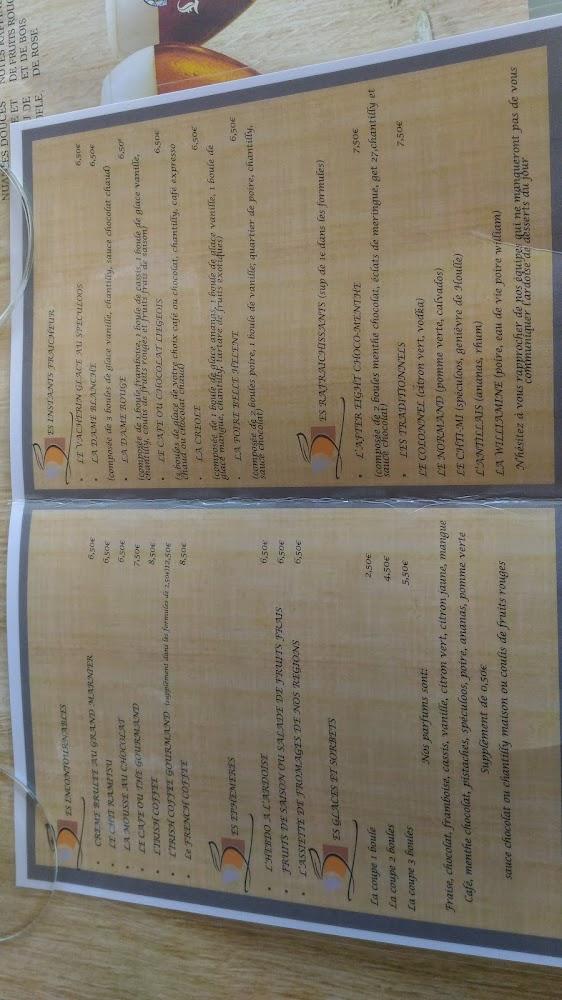 ES INCONTOURNABLES
CREME BRULEE AU GRAND MARNIER 6,50€
• LE CHTI RAMITSU 6,50€
• LA MOUSSE AU CHOCOLAT 6,50€
• LE CAFE OU THE GOURMAND 7,50€
• L'IRISH COFFEE 8,50€
• L'IRISH COFFEE GOURMAND (supplément dans les formules de 2,50€)12,50€
• Le FRENCH COFFEE 8,50€
ES EPHEMERES
• L'HEBDO A L'ARDOISE 6,50€
• FRUITS DE SAISON OU SALADE DE FRUITS FRAIS 6,50€
• L'ASSIETTE DE FROMAGES DE NOS REGIONS 6,50€
ES GLACES ET SORBETS
La coupe 1 boule 2,50€
La coupe 2 boules 4,50€
La coupe 3 boules 5,50€
Nos parfums sont:
Fraise, chocolat, framboise, cassis, vanille, citron vert, citron jaune, mangue
Café, menthe chocolat, pistaches, spéculoos, poire, ananas, pomme verte
Supplément de 0,50€
sauce chocolat ou chantilly maison ou coulis de fruits rouges
ES INSTANTS FRAICHEUR
• LE VACHERIN GLACE AU SPECULOOS 6,50€
• LA DAME BLANCHE 6,50€
(composée de 3 boules de glace vanille, chantilly, sauce chocolat chaud)
• LA DAME ROUGE 6,50€
(composée de 1 boule framboise, 1 boule de cassis, 1 boule de glace vanille,
chantilly, coulis de fruits rouges et fruits frais de saison)
• LE CAFE OU CHOCOLAT LIEGEOIS 6,50€
(3 boules de glace de votre choix café ou chocolat, chantilly, café expresso
chaud ou chocolat chaud)
• LA CREOLE 6,50€
(composée de 1 boule de glace ananas, 1 boule de glace vanille, 1 boule de
glace mangue, chantilly, tartare de fruits exotiques)
• LA POIRE BELLE HELENE 6,50€
(composée de 2 boules poire, 1 boule de vanille, quartier de poire, chantilly,
sauce chocolat)
ES RAFRAICHISSANTS (sup de 1€ dans les formules)
• L'AFTER EIGHT CHOCO-MENTHE 7,50€
(composée de 2 boules menthe chocolat, éclats de meringue, get 27,chantilly et
sauce chocolat)
• LES TRADITIONNELS 7,50€
LE COLONNEL (citron vert, vodka)
LE NORMAND (pomme verte, calvados)
LE CHTI-MI (spéculoos, genièvre de Houlle)
L'ANTILLAIS (ananas, rhum)
LA WILLIAMINE (poire, eau de vie poire william)
N'hesitez à vous rapprocher de nos équipes qui ne manqueront pas de vous
communiquer l'ardoise de desserts du jour